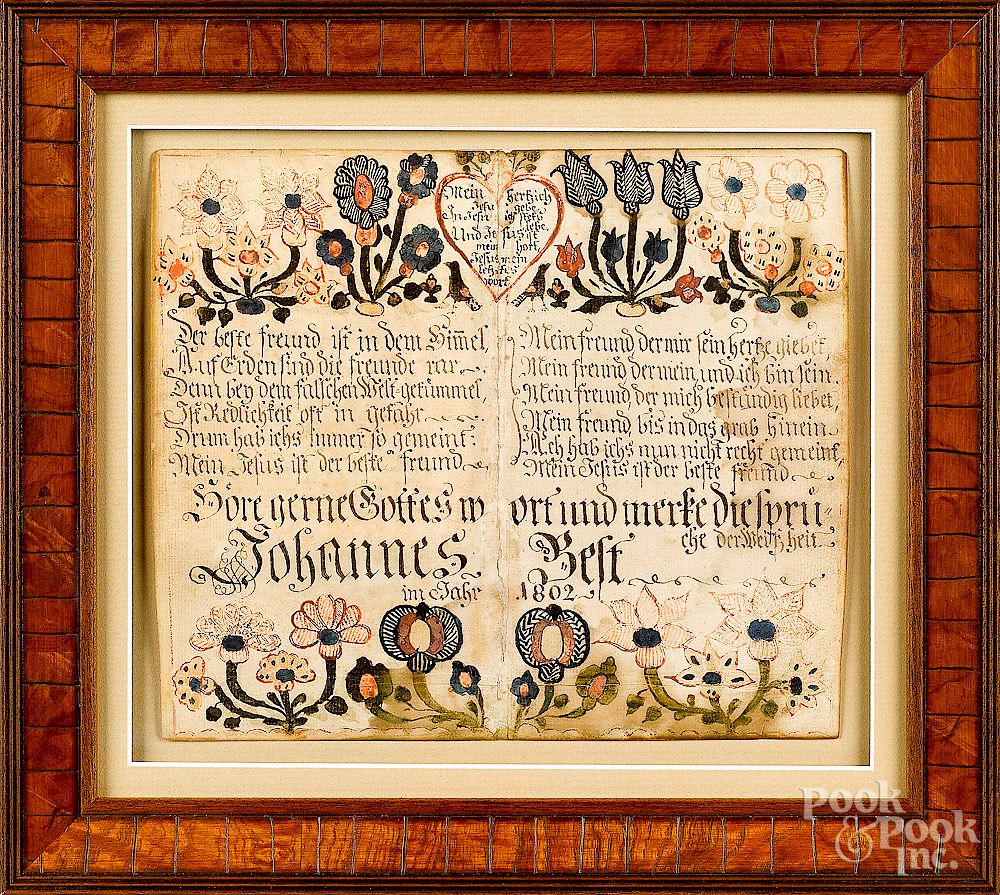 Mein hertz ich
Jesu gebe
In Jesu ich stets lebe
Und Jesus ist
mein hort,
Jesus mein
letztes
wort
Der beste freund ist in dem Him̅el,
Auf Erden sind die freunde rar
Denn bey dem falschen Welt-getümmel,
Ist Redlichkeit oft in gefahr
Drum hab ichs Immer so gemeint:
Mein Jesus ist der beste freund
Mein freund der mir sein hertze giebet,
Mein freund der mein, und ich bin sein.
Mein freund der mich beständig liebet,
Mein freund bis in das grab hinein
Ach hab ichs nun nicht recht gemeint,
Mein Jesus ist der beste freund
Höre gerne Gottes wort und merke die sprü-
che der Weißheit
Johannes Best
im Jahr 1802
POOK
& POOK
INC.